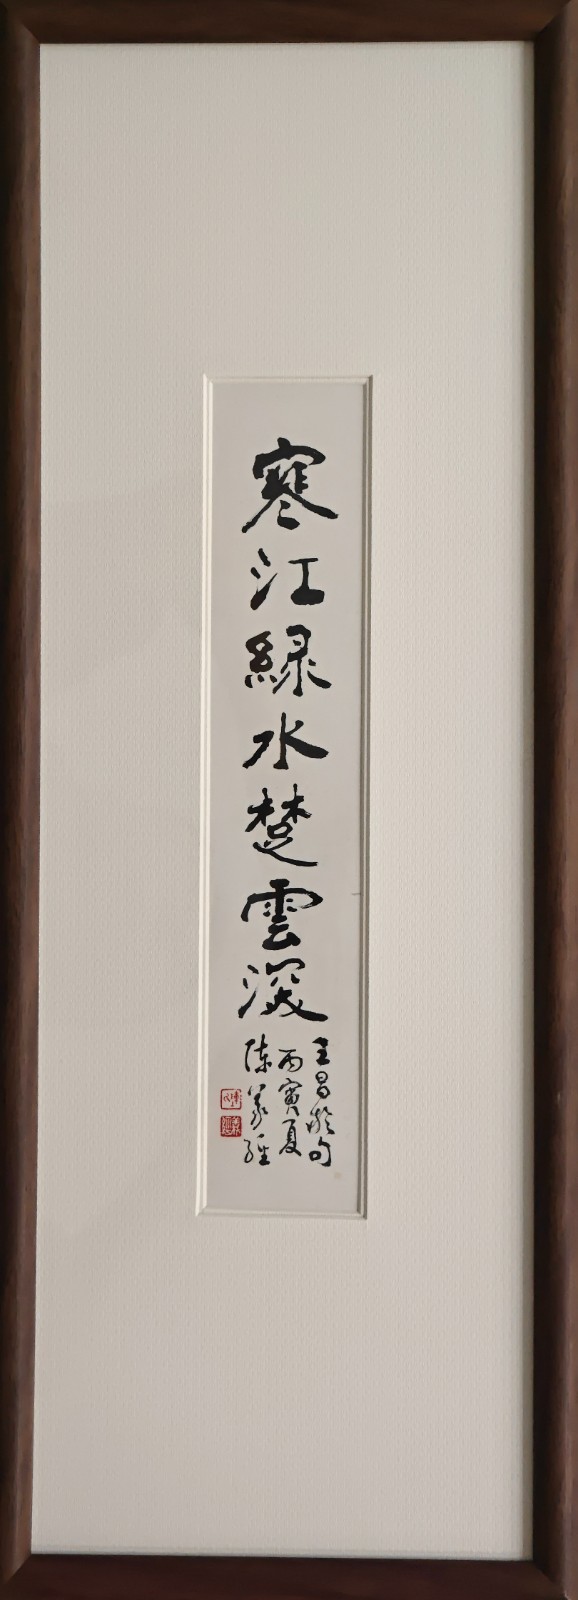 寒江綠水楚雲深
王昌齡句
丙寅夏
陳義經